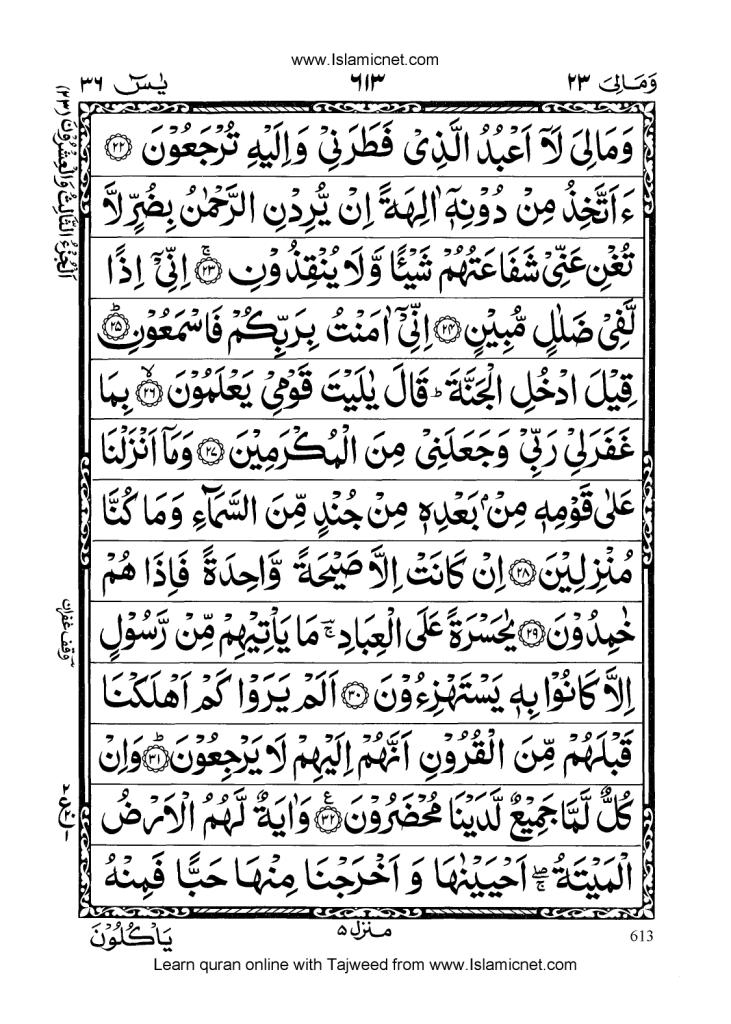 www.Islamicnet.com
وَمَالِیَ ۲۳
٦١٣
یٰسٓ ۳٦
اَلْجُزْءُ الثَّالِثُ وَالْعِشْرُوْنَ (۲۳)
وَمَالِیَ لَاۤ اَعْبُدُ الَّذِیْ فَطَرَنِیْ وَاِلَیْهِ تُرْجَعُوْنَ ﴿۲۲﴾
ءَاَتَّخِذُ مِنْ دُوْنِهٖۤ اٰلِهَةً اِنْ یُّرِدْنِ الرَّحْمٰنُ بِضُرٍّ لَّا
تُغْنِ عَنِّیْ شَفَاعَتُهُمْ شَیْـًٔا وَّلَا یُنْقِذُوْنِ ﴿۲۳﴾ۚ اِنِّیْۤ اِذًا
لَّفِیْ ضَلٰلٍ مُّبِیْنٍ ﴿۲۴﴾ اِنِّیْۤ اٰمَنْتُ بِرَبِّكُمْ فَاسْمَعُوْنِ ﴿۲۵﴾ؕ
قِیْلَ ادْخُلِ الْجَنَّةَ ؕ قَالَ یٰلَیْتَ قَوْمِیْ یَعْلَمُوْنَ ﴿۲۶﴾ۙ بِمَا
غَفَرَلِیْ رَبِّیْ وَجَعَلَنِیْ مِنَ الْمُكْرَمِیْنَ ﴿۲۷﴾ وَمَاۤ اَنْزَلْنَا
عَلٰی قَوْمِهٖ مِنْۢ بَعْدِهٖ مِنْ جُنْدٍ مِّنَ السَّمَآءِ وَمَا كُنَّا
مُنْزِلِیْنَ ﴿۲۸﴾ اِنْ كَانَتْ اِلَّا صَیْحَةً وَّاحِدَةً فَاِذَا هُمْ
خٰمِدُوْنَ ﴿۲۹﴾ یٰحَسْرَةً عَلَی الْعِبَادِ ۚ مَا یَاْتِیْهِمْ مِّنْ رَّسُوْلٍ
اِلَّا كَانُوْا بِهٖ یَسْتَهْزِءُوْنَ ﴿۳۰﴾ اَلَمْ یَرَوْا كَمْ اَهْلَكْنَا
قَبْلَهُمْ مِّنَ الْقُرُوْنِ اَنَّهُمْ اِلَیْهِمْ لَا یَرْجِعُوْنَ ﴿۳۱﴾ؕ وَاِنْ
كُلٌّ لَّمَّا جَمِیْعٌ لَّدَیْنَا مُحْضَرُوْنَ ﴿۳۲﴾ۧ وَاٰیَةٌ لَّهُمُ الْاَرْضُ
الْمَیْتَةُ ۖۚ اَحْیَیْنٰهَا وَ اَخْرَجْنَا مِنْهَا حَبًّا فَمِنْهُ
وقف غفران
منزل ۵
یَاْكُلُوْنَ
613
Learn quran online with Tajweed from www.Islamicnet.com